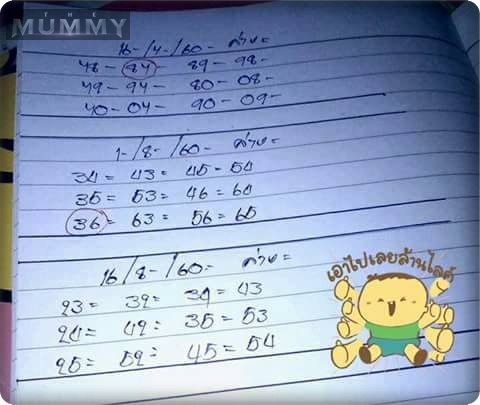 MUMMY
16-/4-/60-
48- 84- 89- 98-
49- 94- 80- 08-
40- 04- 90- 09-
1-/8-/60-
34= 43= 45= 54
35= 53= 46= 64
36= 63= 56= 65
16/8-/60-
23= 32= 34= 43
24= 42= 35= 53
25= 52= 45= 54
เอาไปเลยล้านไลค์